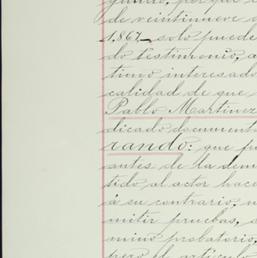 de veintinueve d
1.867_ solo puede
do testimonio, a
timo interesado
calidad de que
Pablo Martinez
dicado document
rando: que fu
antes de la dem
tido al actor hace
á su contrario, n
mitir pruebas, a
mino probatorio,
pero el artículo